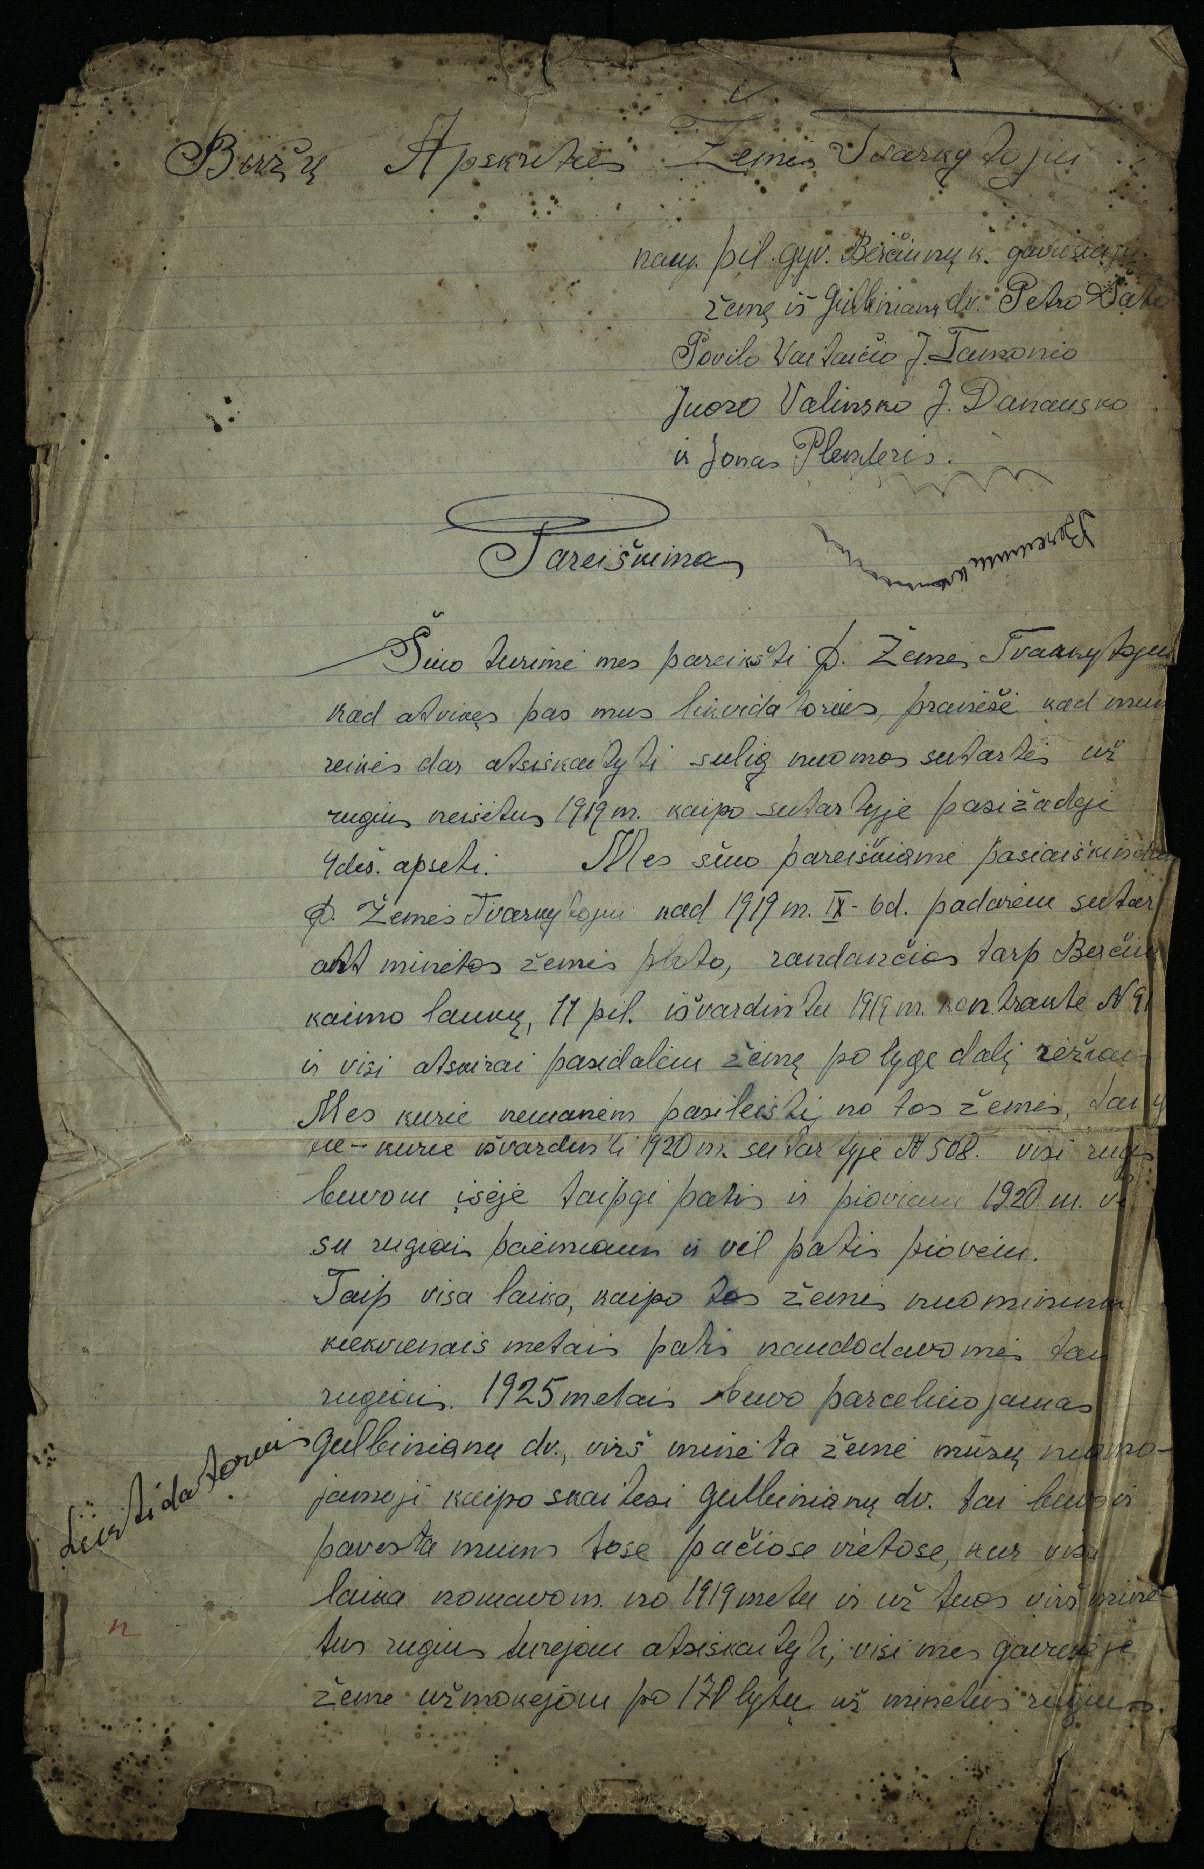 Biržų Apskrities Žemės Tvarkytojui
nauj. pil. gyv. Berčiunų k. gavusiųjų
žemę iš Gulbinianų dv. Petro
Povilo Vaitaičio J. Tamonio
Juozo Valinsko J. Danausko
ir Jonas Plenteris.
Pareiškimas
Šiuo turime mes pareikšti p. Žemės Tvarkytojui
kad atvikęs pas mus likvidatorius, pranešė kad mum
reikės dar atsiskaityti sulig nuomos sutartės už
rugius neisėtus 1919 m. kaipo sutartyje pasižadėji
4deš. apseti. Mes šiuo pareiškiame
p. Žemės Tvarkytojui kad 1919 m. IX - 6d. padarėm sutar
ant minėtos žemės ploto, randančios tarp Berčiu
kaimo laukų, 11 pil. išvardintu 1919 m. kontrakte N 91
ir visi atskirai pasidalėm žemę po lygę dalį rėžiais
Mes kurie nemanėm pasileisti no tos žemės,
kurie išvardinti 1920 m. sutartyje N 508. visi rugi
buvom įsėje taipgi patis ir pioviam 1920 m. vė
su rugiais paėmiaum ir vėl patis piovėm.
Taip visa laika, kaipo tos žemės nuomininka
kiekvienais metais patis naudodavomės tai
rugiais. 1925 metais buvo parceliuojamas
Gulbinianų dv., virš minėta žemė mūsų nuomo-
jamoji kaipo skaitėsi Gulbinianų dv. tai buvo ir
pavesta mums tose pačiose vietose, kur visa
laika nomavom. no 1919 metu ir už tuos virš minė-
tus rugius turėjom atsiskaityti, visi mes gavusieje
žeme užmokėjom po 170 lytų už minėtus rugius.
Likvidatorius
n